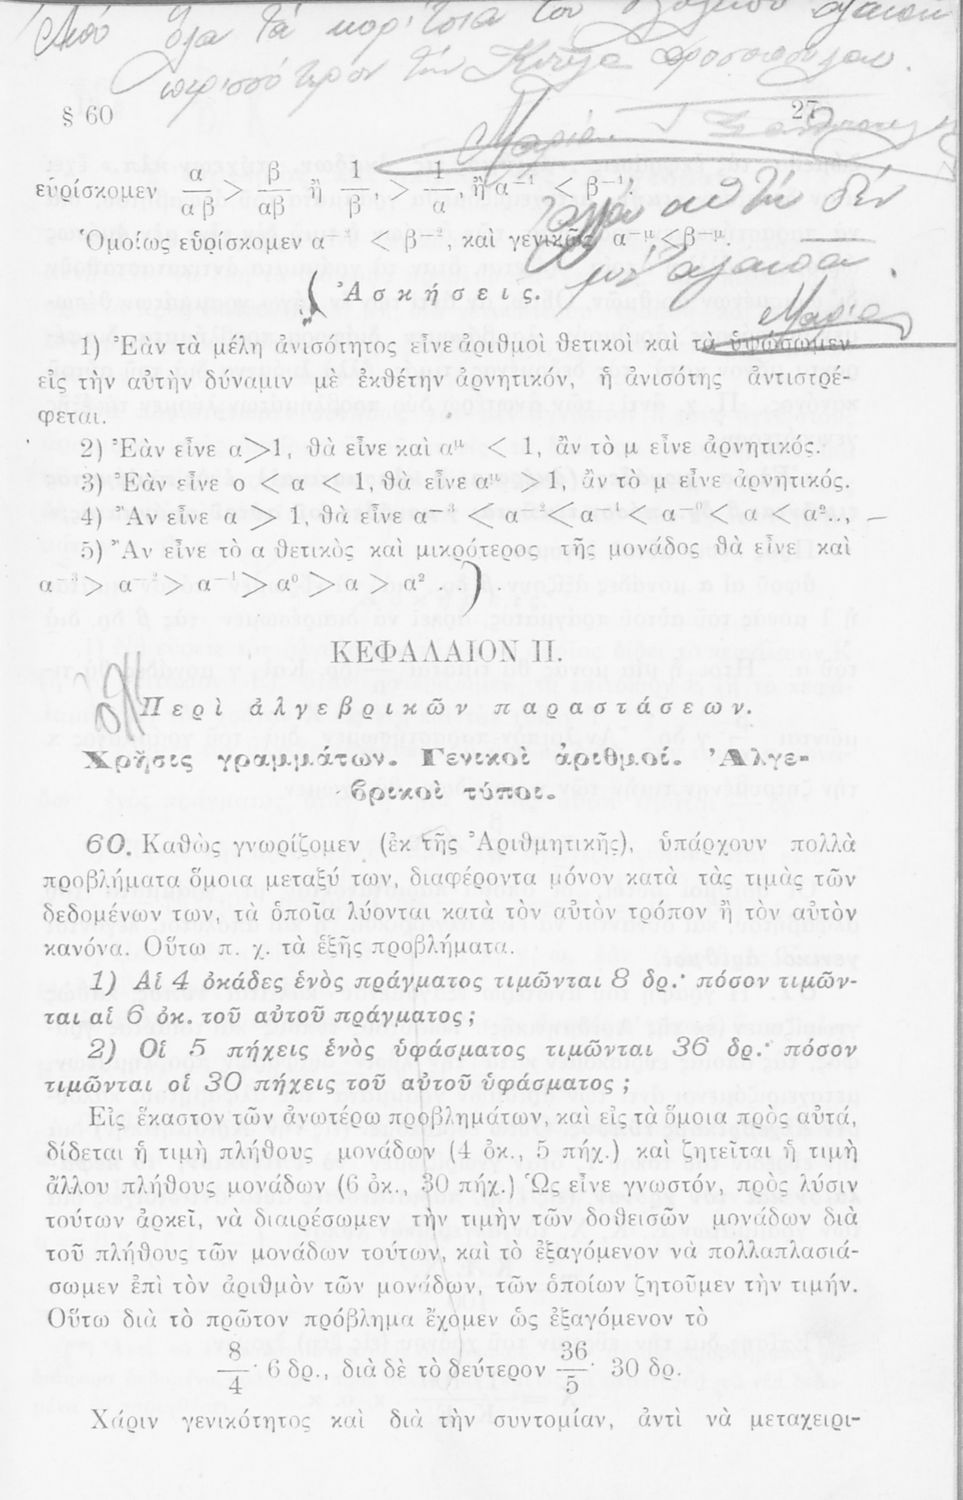 Ἀπό ὅλα τά κορίτσια τοῦ
περισσότερον τήν
§ 60
27
Μαρία
εὑρίσκομεν α/αβ > β/αβ ἢ 1/β, > 1/α, ἢ α⁻¹ < β⁻¹,
αὐτή δέν
Ὁμοίως εὑρίσκομεν α⁻² < β⁻², καὶ γενικῶς α⁻μ < β⁻μ.
Ἀσκήσεις.
Μαρία
1) Ἐὰν τὰ μέλη ἀνισότητος εἶνε ἀριθμοὶ θετικοὶ καὶ τὰ ὑψώσωμεν
εἰς τὴν αὐτὴν δύναμιν μὲ ἐκθέτην ἀρνητικόν, ἡ ἀνισότης ἀντιστρέ-
φεται.
2) Ἐὰν εἶνε α > 1, θὰ εἶνε καὶ αμ < 1, ἂν τὸ μ εἶνε ἀρνητικός.
3) Ἐὰν εἶνε ο < α < 1, θὰ εἶνε αμ > 1, ἂν τὸ μ εἶνε ἀρνητικός.
4) Ἂν εἶνε α > 1, θὰ εἶνε α⁻³ < α⁻² < α⁻¹ < α⁻⁰ < α < α²..,
5) Ἂν εἶνε τὸ α θετικὸς καὶ μικρότερος τῆς μονάδος θὰ εἶνε καὶ
α⁻³ > α⁻² > α⁻¹ > α⁰ > α > α² . . .
ΚΕΦΑΛΑΙΟΝ ΙΙ.
Περὶ ἀλγεβρικῶν παραστάσεων.
Χρῆσις γραμμάτων. Γενικοὶ ἀριθμοί. Ἀλγε-
βρικοὶ τύποι.
60. Καθὼς γνωρίζομεν (ἐκ τῆς Ἀριθμητικῆς), ὑπάρχουν πολλὰ
προβλήματα ὅμοια μεταξύ των, διαφέροντα μόνον κατὰ τὰς τιμὰς τῶν
δεδομένων των, τὰ ὁποῖα λύονται κατὰ τὸν αὐτὸν τρόπον ἢ τὸν αὐτὸν
κανόνα. Οὕτω π. χ. τὰ ἑξῆς προβλήματα.
1) Αἱ 4 ὀκάδες ἑνὸς πράγματος τιμῶνται 8 δρ.· πόσον τιμῶν-
ται αἱ 6 ὀκ. τοῦ αὐτοῦ πράγματος ;
2) Οἱ 5 πήχεις ἑνὸς ὑφάσματος τιμῶνται 36 δρ.· πόσον
τιμῶνται οἱ 30 πήχεις τοῦ αὐτοῦ ὑφάσματος ;
Εἰς ἕκαστον τῶν ἀνωτέρω προβλημάτων, καὶ εἰς τὰ ὅμοια πρὸς αὐτά,
δίδεται ἡ τιμὴ πλήθους μονάδων (4 ὀκ., 5 πήχ.) καὶ ζητεῖται ἡ τιμὴ
ἄλλου πλήθους μονάδων (6 ὀκ., 30 πήχ.) Ὡς εἶνε γνωστόν, πρὸς λύσιν
τούτων ἀρκεῖ, νὰ διαιρέσωμεν τὴν τιμὴν τῶν δοθεισῶν μονάδων διὰ
τοῦ πλήθους τῶν μονάδων τούτων, καὶ τὸ ἐξαγόμενον νὰ πολλαπλασιά-
σωμεν ἐπὶ τὸν ἀριθμὸν τῶν μονάδων, τῶν ὁποίων ζητοῦμεν τὴν τιμήν.
Οὕτω διὰ τὸ πρῶτον πρόβλημα ἔχομεν ὡς ἐξαγόμενον τὸ
8/4 · 6 δρ., διὰ δὲ τὸ δεύτερον 36/5 · 30 δρ.
Χάριν γενικότητος καὶ διὰ τὴν συντομίαν, ἀντὶ νὰ μεταχειρι-